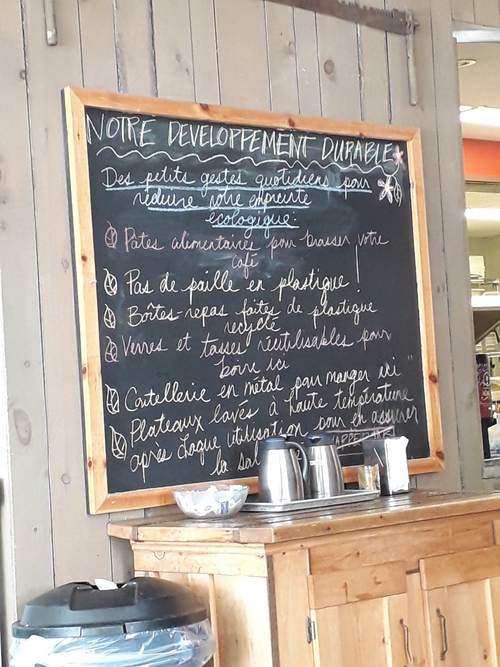 NOTRE DEVELOPPEMENT DURABLE
Des petits gestes quotidiens pour
réduire votre empreinte
écologique:
Pates alimentaires pour brasser votre
café
Pas de paille en plastique!
Boîtes-repas faites de plastique
recyclé
Verres et tasses réutilisables pour
boire ici
Coutellerie en métal pour manger ici
Plateaux lavés à haute température
après chaque utilisation pour en assurer
la